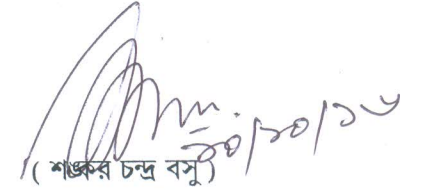 ২০/১০/১৬
( শঙ্কর চন্দ্র বসু )